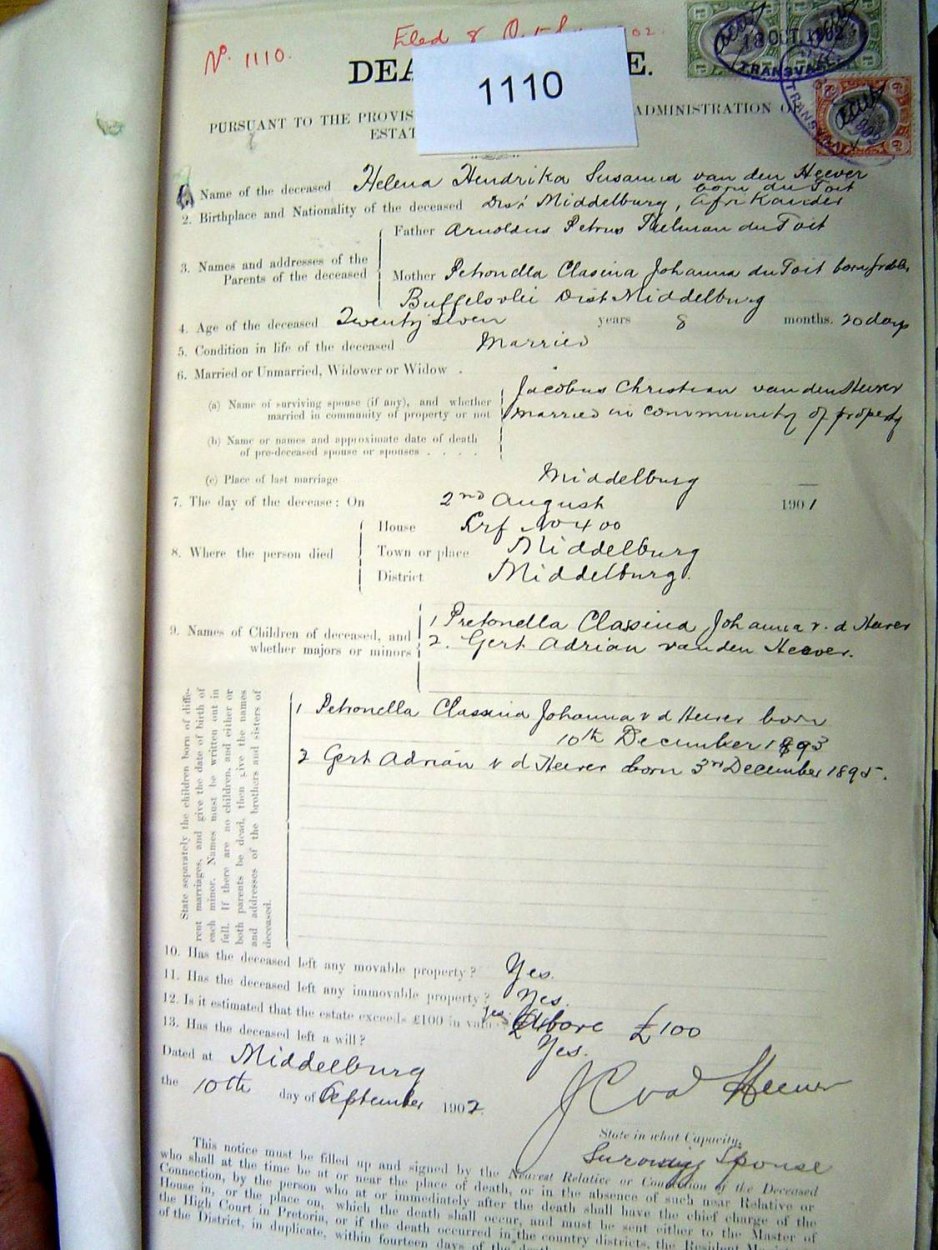 No. 1110. Filed 8 02.
18 OCT 1902
TRANSVAAL
TRANSVAAL
DEA E.
1110
PURSUANT TO THE PROVIS ADMINISTRATION OF
ESTAT
1. Name of the deceased Helena Hendrika Susanna van den Heever
born du Toit
2. Birthplace and Nationality of the deceased Dist Middelburg, Afrikander
3. Names and addresses of the Parents of the deceased
Father Arnoldus Petrus Tielman du Toit
Mother Petronella Clasina Johanna du Toit born
Buffelsvlei Dist Middelburg
4. Age of the deceased Twenty seven years 8 months. 20 days
5. Condition in life of the deceased Married
6. Married or Unmarried, Widower or Widow .
(a) Name of surviving spouse (if any), and whether married in community of property or not
Jacobus Christian van den Heever
married in community of property
(b) Name or names and approximate date of death
of pre-deceased spouse or spouses . . . .
(c) Place of last marriage Middelburg
7. The day of the decease: On 2nd August 1901
8. Where the person died
House Erf No 400
Town or place Middelburg
District Middelburg.
9. Names of Children of deceased, and whether majors or minors
1 Pretonella Classina Johanna v. d Heever
2. Gert Adrian van den Heever.
State separately the children born of diffe-
rent marriages, and give the date of birth of
each minor. Names must be written out in
full. If there are no children, and either or
both parents be dead, then give the names
and addresses of the brothers and sisters of
deceased.
1 Petronella Classina Johanna v d Heever born
10th December 1893
2 Gert Adrian v d Heever born 3rd December 1895.
10. Has the deceased left any movable property? Yes.
11. Has the deceased left any immovable property? Yes.
12. Is it estimated that the estate exceeds £100 in value yes Above £100
13. Has the deceased left a will? Yes.
Dated at Middelburg
the 10th day of September 1902.
J C vd Heever
State in what Capacity.
Surviving Spouse
This notice must be filled up and signed by the Nearest Relative or Connection of the Deceased
who shall at the time be at or near the place of death, or in the absence of such near Relative or
Connection, by the person who at or immediately after the death shall have the chief charge of the
House in, or the place on, which the death shall occur, and must be sent either to the Master of
the High Court in Pretoria, or if the death occurred in the country districts, the Resident
of the District, in duplicate, within fourteen days of the